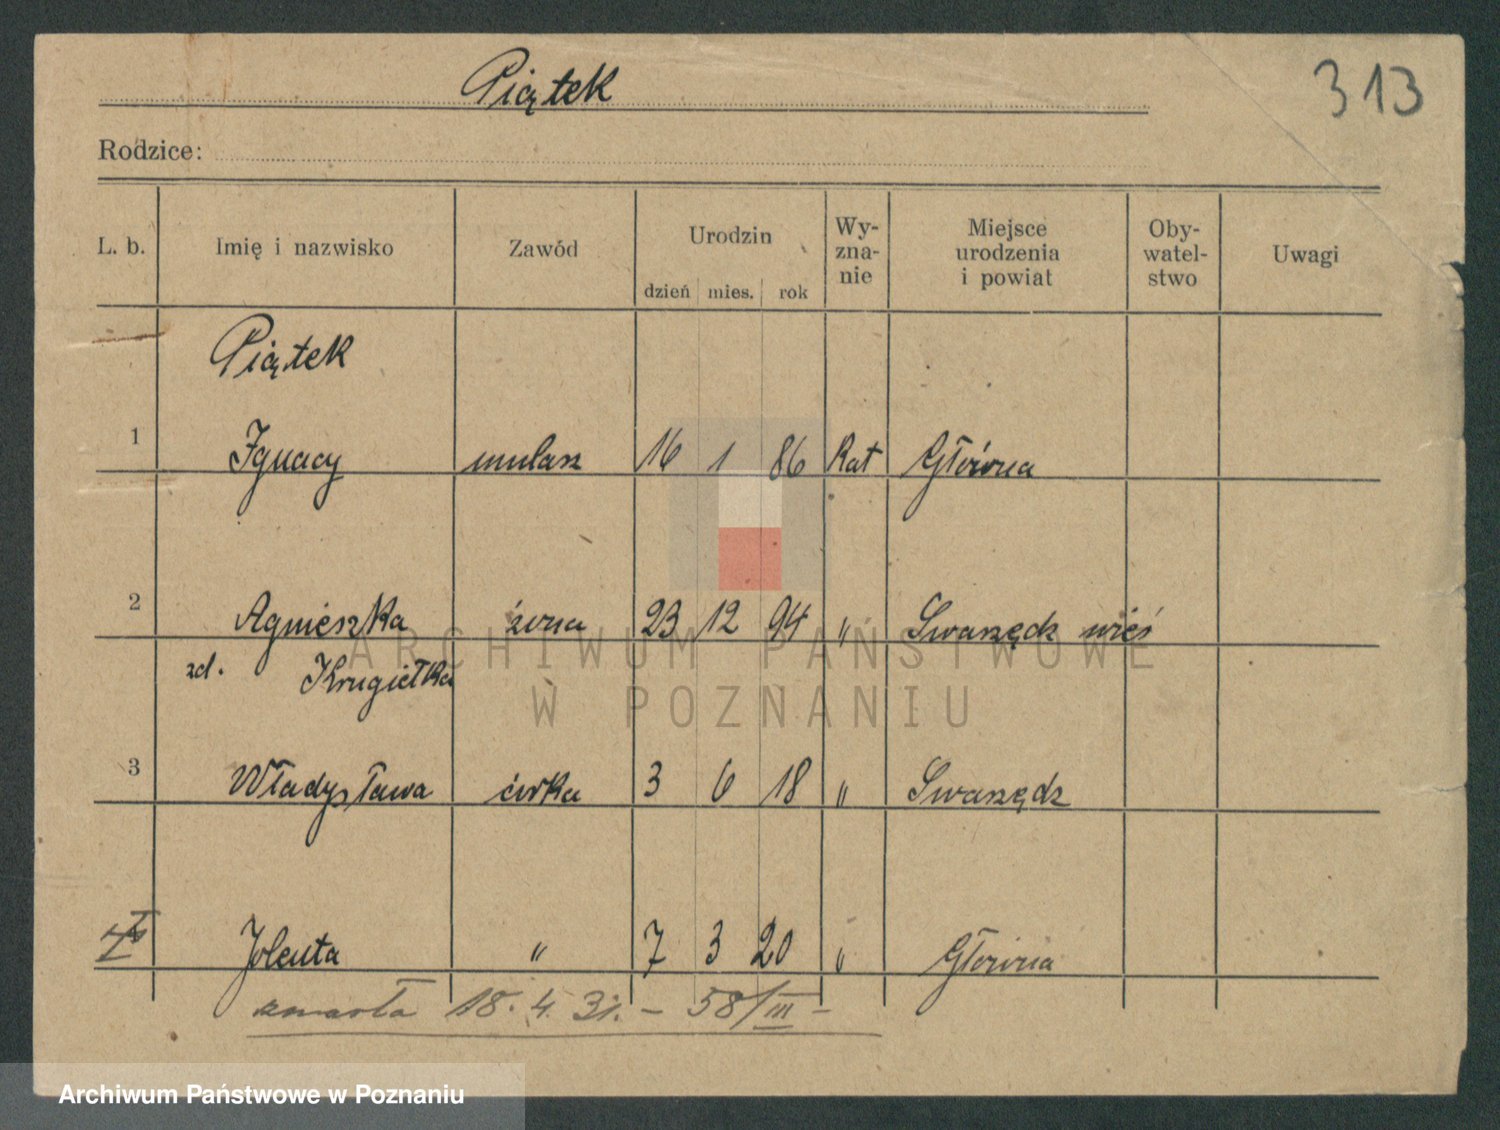 Piątek
313
Rodzice:
L. b. Imię i nazwisko Zawód Urodzin dzień mies. rok Wy-zna-nie Miejsce urodzenia i powiat Oby-watel-stwo Uwagi
Piątek
1 Ignacy mularz 16 1 86 Kat Główna
2 Agnieszka żona 23 12 94 " Swarzędz wieś
zd. Krugiełka
3 Władysława córka 3 6 18 " Swarzędz
Jolenta " 7 3 20 " Główna
zmarła 18. 4. 31. - 58/III -
ARCHIWUM PAŃSTWOWE
W POZNANIU
Archiwum Państwowe w Poznaniu